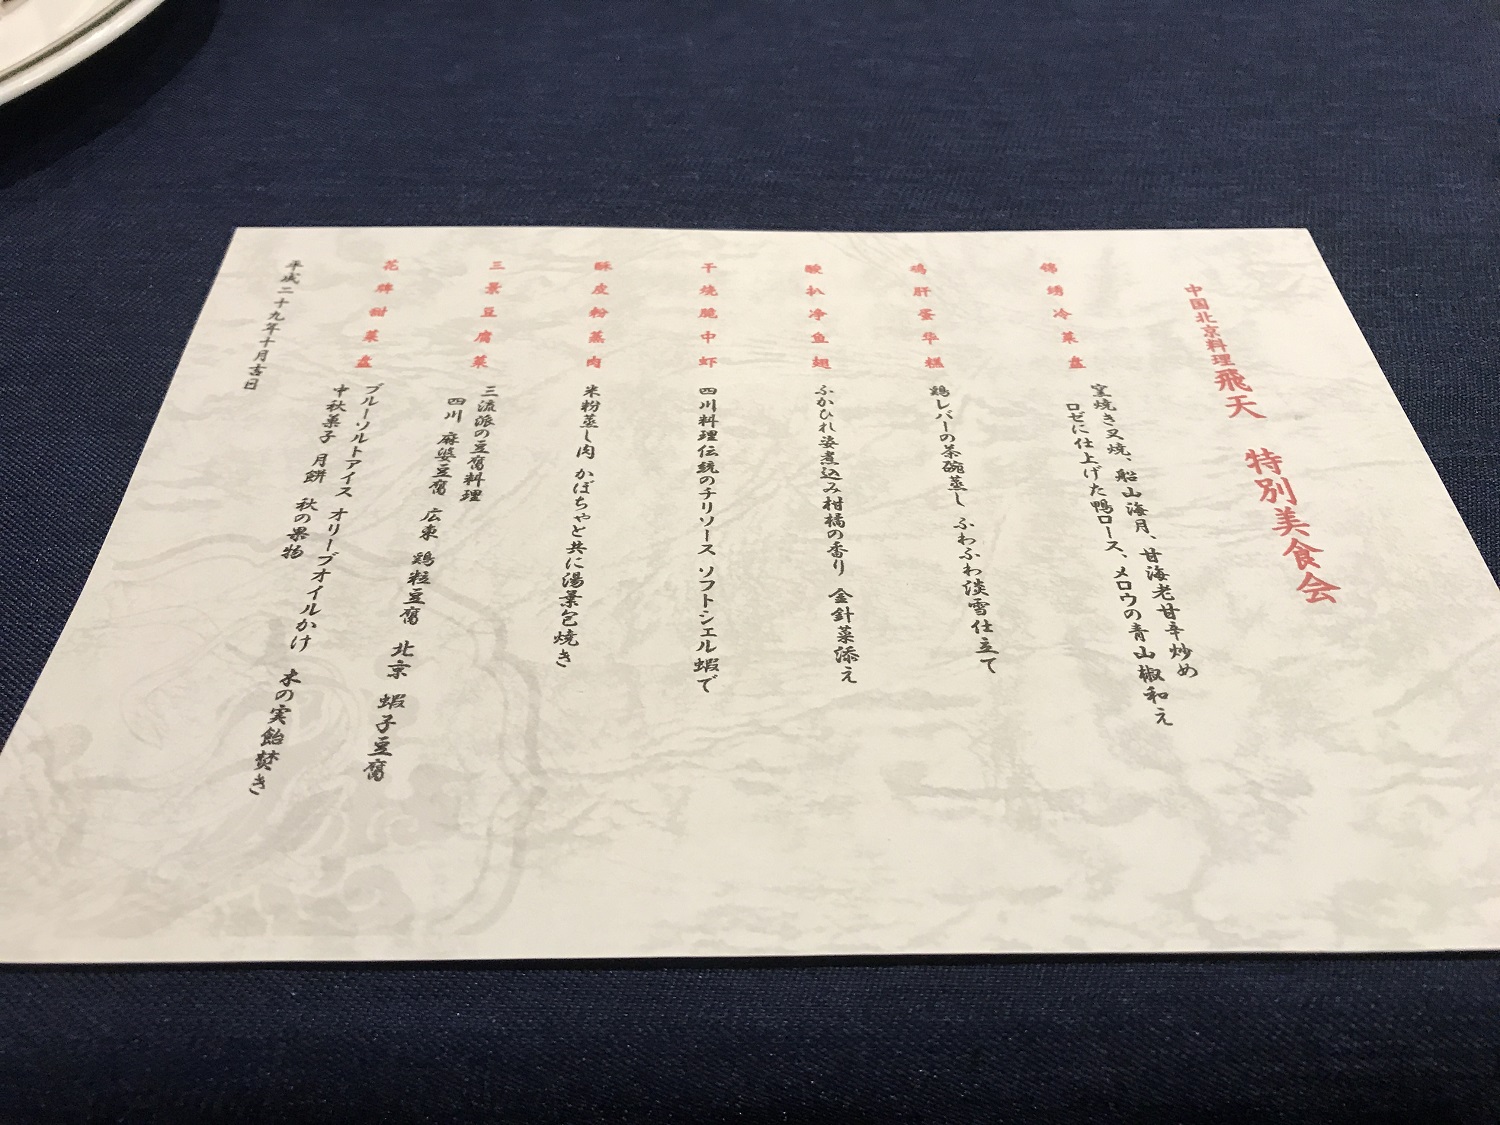 中国北京料理飛天　特別美食会
锦绣冷菜盘
窯焼き叉焼、船山海月、甘海老甘辛炒め
ロゼに仕上げた鴨ロース、メロウの青山椒和え
鸡肝蛋华糕
鶏レバーの茶碗蒸し ふわふわ淡雪仕立て
酸扒净鱼翅
ふかひれ姿煮込み柑橘の香り 金針菜添え
干烧脆中虾
四川料理伝統のチリソース ソフトシェル蝦で
酥皮粉蒸肉
米粉蒸し肉 かぼちゃと共に湯葉包焼き
三景豆腐菜
三流派の豆腐料理
四川 麻婆豆腐 広東 鶏粒豆腐 北京 蝦子豆腐
花牌甜菜盘
ブルーソルトアイス オリーブオイルかけ 木の実飴焚き
中秋菓子 月餅 秋の果物
平成二十九年十月吉日